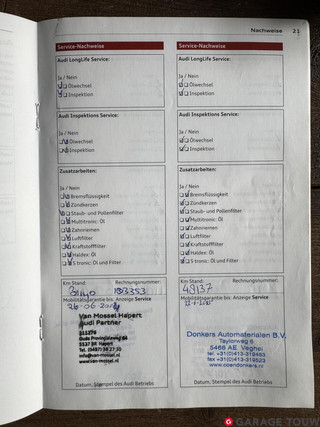 Nachweise 21
Service-Nachweise
Audi LongLife Service:
Ja / Nein
Ölwechsel
Inspektion
Audi Inspektions Service:
Ja / Nein
Ölwechsel
Inspektion
Zusatzarbeiten:
Ja / Nein
Bremsflüssigkeit
Zündkerzen
Staub- und Pollenfilter
Multitronic: Öl
Zahnriemen
Luftfilter
Kraftstofffilter
Haldex: Öl
S tronic: Öl und Filter
Km Stand: Rechnungsnummer:
103353
Mobilitätsgarantie bis: Anzeige Service
Van Mossel Hapert
Audi Partner
5527 BR Hapert
info@van-mossel.nl
www.van-mossel.nl
Datum, Stempel des Audi Betriebs
Service-Nachweise
Audi LongLife Service:
Ja / Nein
Ölwechsel
Inspektion
Audi Inspektions Service:
Ja / Nein
Ölwechsel
Inspektion
Zusatzarbeiten:
Ja / Nein
Bremsflüssigkeit
Zündkerzen
Staub- und Pollenfilter
Multitronic: Öl
Zahnriemen
Luftfilter
Kraftstofffilter
Haldex: Öl
S tronic: Öl und Filter
Km Stand: Rechnungsnummer:
49137
Mobilitätsgarantie bis: Anzeige Service
Donkers Automaterialen B.V.
Taylorweg 6
5466 AE Veghel
www.coendonkers.nl
Datum, Stempel des Audi Betriebs
GARAGE TOUW